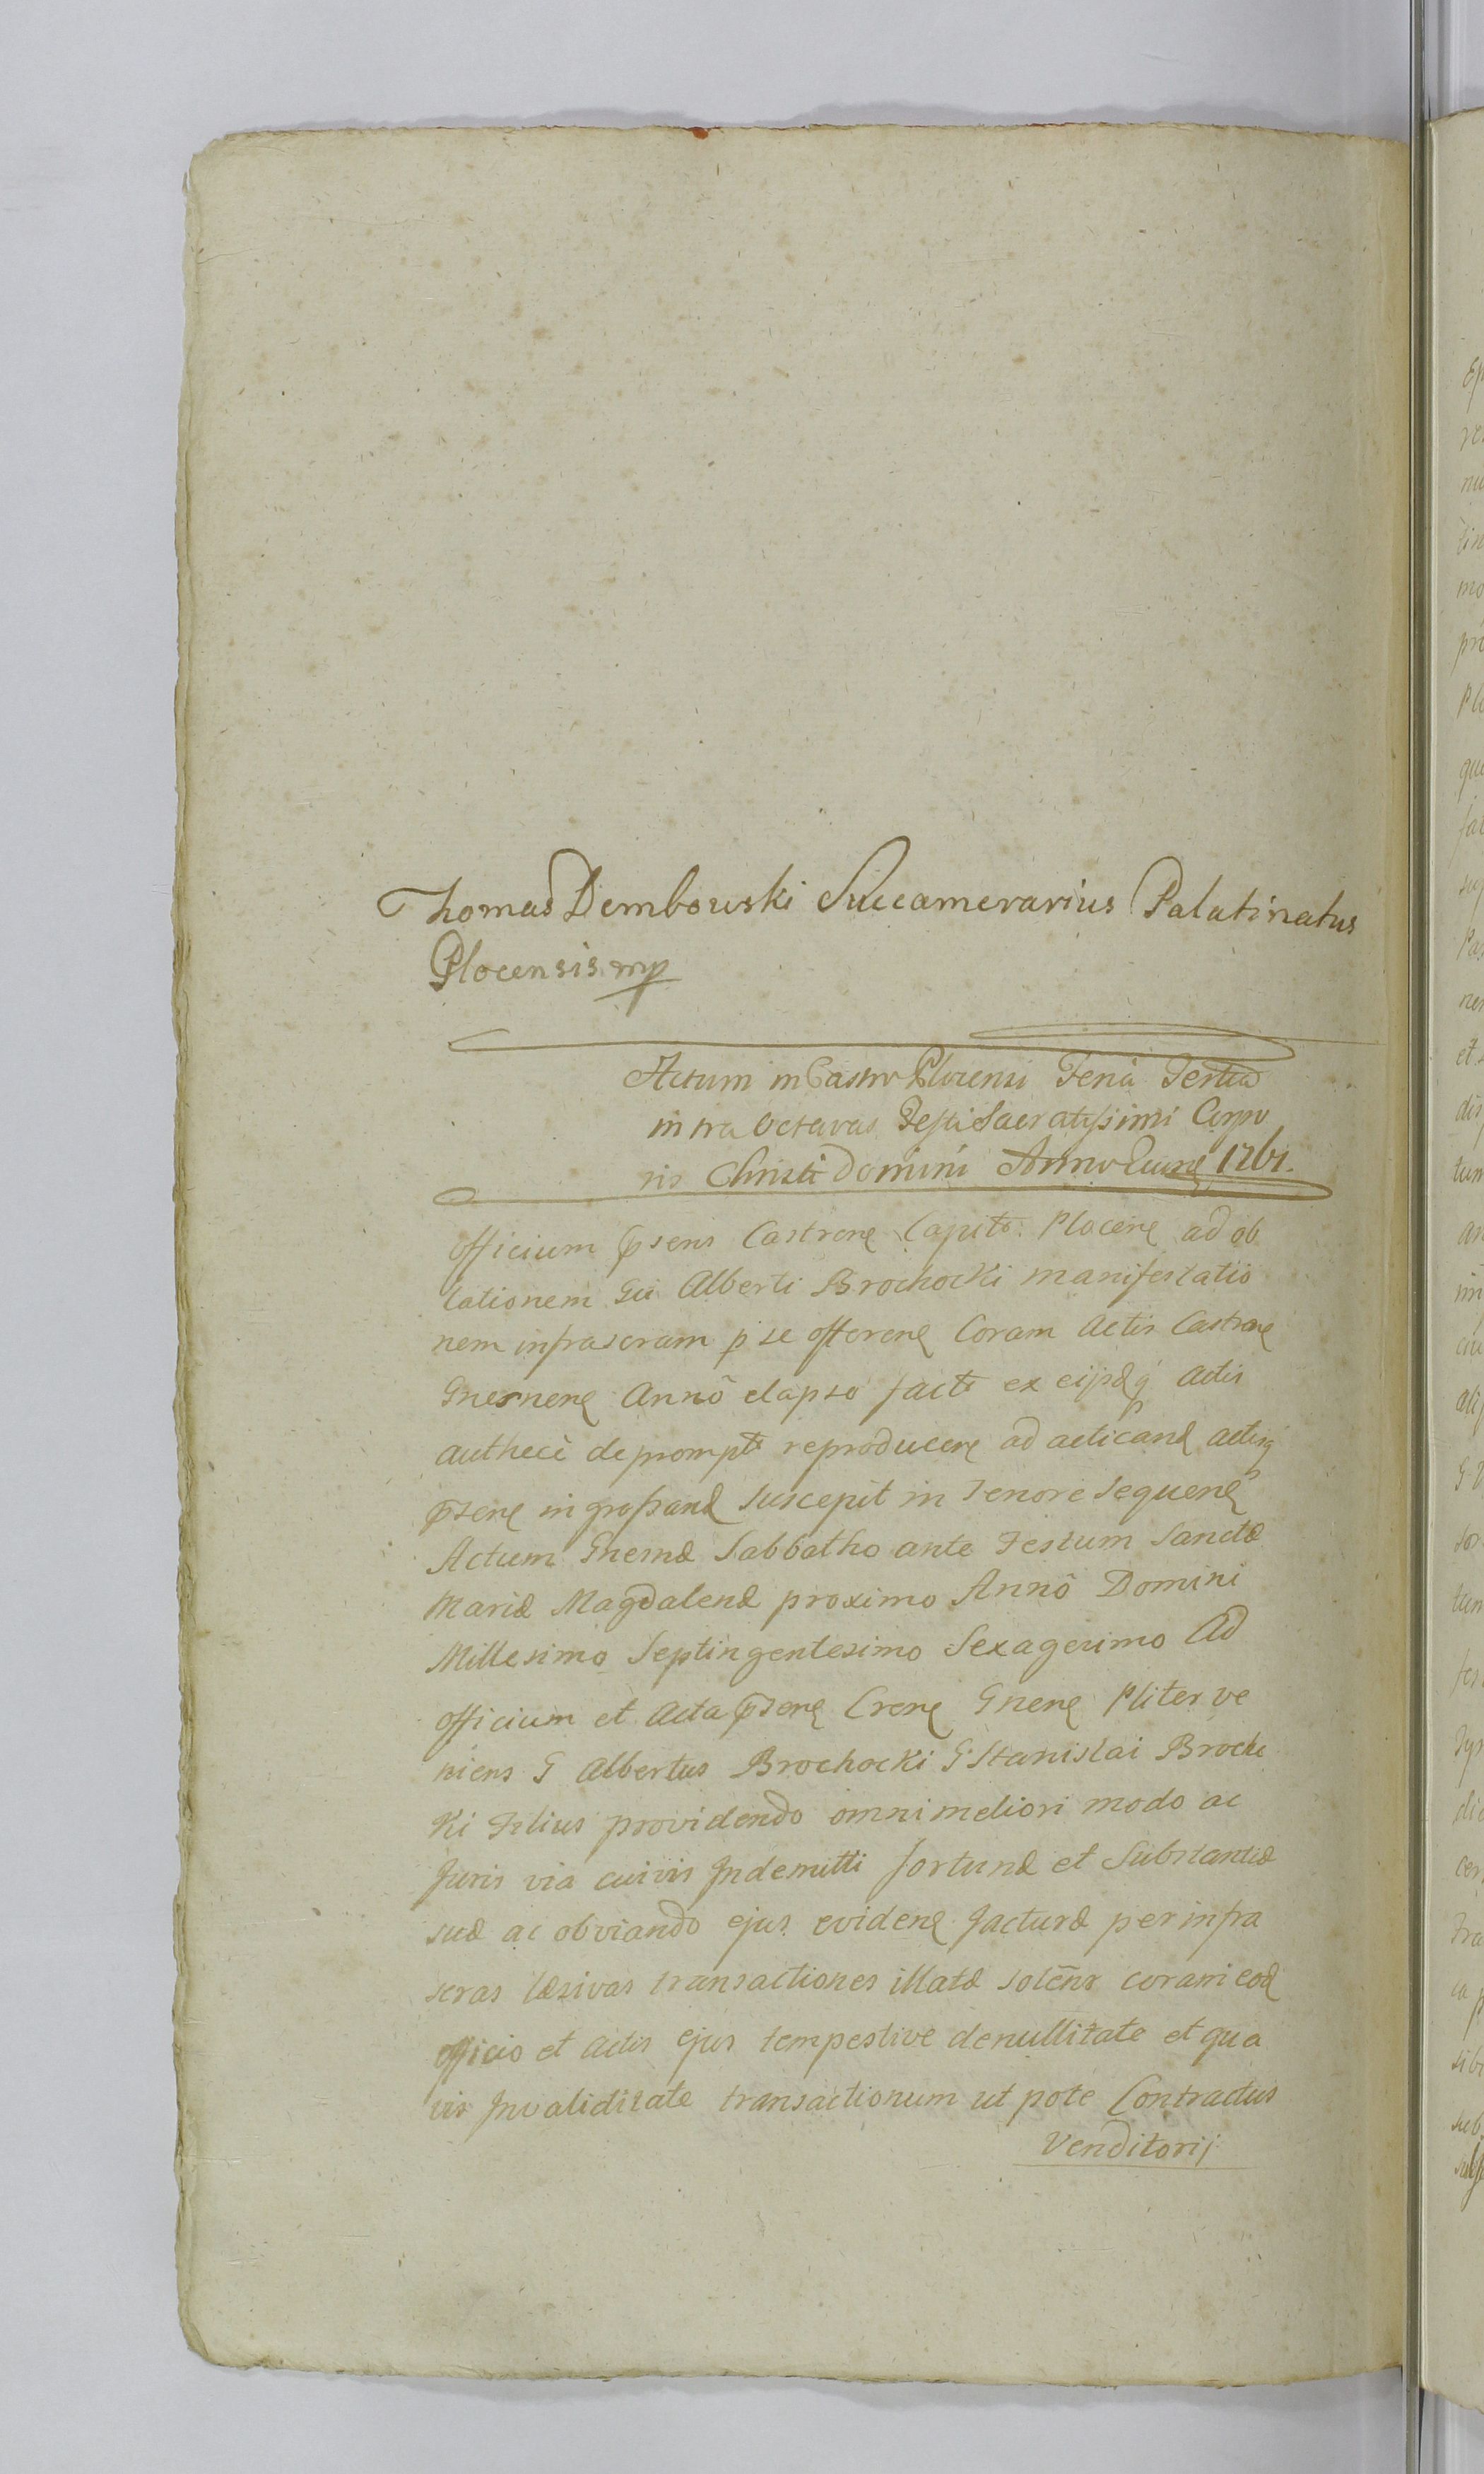 Thomas Dembowski Succamerarius Palatinatus
Plocensis mp
Actum in Castro Plocensi Feria Tertia
intra Octavas Festi Sacratissimi Corpo
ris Christi Domini Anno Eiusd 1761.
Officium pŝens Castrene Capite: Plocene ad ob
lationem Gsi Alberti Brochocki manifestatio
nem infrascram p se offerene Coram Actis Castrene
Gnesnene Annô elapso facte ex eijsdq Actis
authece de prompte reproducere ad acticand actisq
pŝene ingrossand suscepit in tenore sequene
Actum Gnesnæ Sabbatho ante Festum Sanctæ
Mariæ Magdalenæ proximo Annô Domini
Millesimo Septingentesimo Sexagesimo Ad
Officium et Acta pŝene Crene Gnene Pliter ve
niens G Albertus Brochocki G Stanislai Brocho
Ki Filius providendo omnimeliori modo ac
Juris via cuivis Indemitti fortunæ et Substantiæ
suæ ac obviando ejus evidene Jacturæ per infra
scras læsivas transactiones illatæ solenr coram eod
officio et Actis ejus tempestive denullitate et qua
vis Jnvaliditate transactionum ut pote Contractus
Venditorij